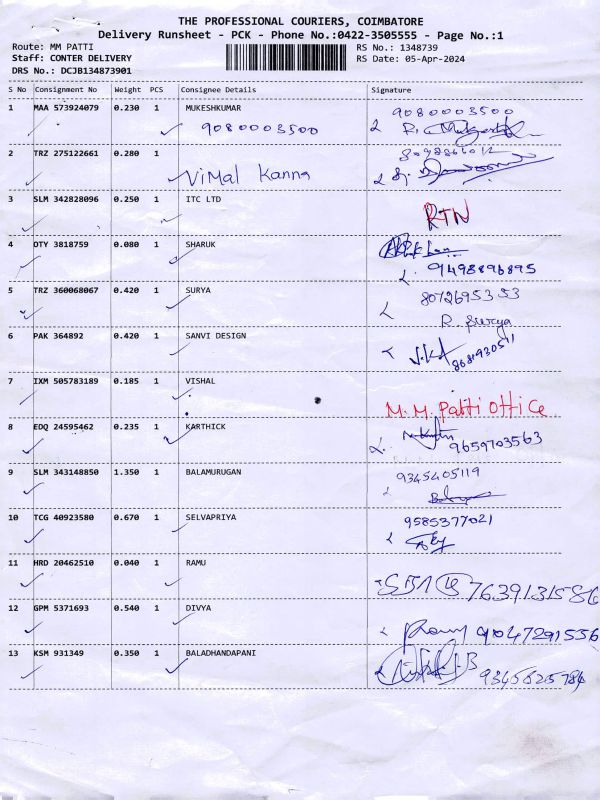 THE PROFESSIONAL COURIERS, COIMBATORE
Delivery Runsheet - PCK - Phone No.:0422-3505555 - Page No.:1
Route: MM PATTI RS No.: 1348739
Staff: CONTER DELIVERY RS Date: 05-Apr-2024
DRS No.: DCJB134873901
S No Consignment No Weight PCS Consignee Details Signature
1 MAA 573924079 0.230 1 MUKESHKUMAR 9080003500
9080003500
2 TRZ 275122661 0.280 1
Vimal Kanna
3 SLM 342828096 0.250 1 ITC LTD RTN
4 OTY 3818759 0.080 1 SHARUK
9498896895
5 TRZ 360068067 0.420 1 SURYA 8072695353
R. Surya
6 PAK 364892 0.420 1 SANVI DESIGN
7 IXM 505783189 0.185 1 VISHAL
M. M. Patti Office
8 EDQ 24595462 0.235 1 KARTHICK
9659703563
9 SLM 343148850 1.350 1 BALAMURUGAN 9345405119
10 TCG 40923580 0.670 1 SELVAPRIYA 9585377021
11 HRD 20462510 0.040 1 RAMU
7639131586
12 GPM 5371693 0.540 1 DIVYA
9047291556
13 KSM 931349 0.350 1 BALADHANDAPANI